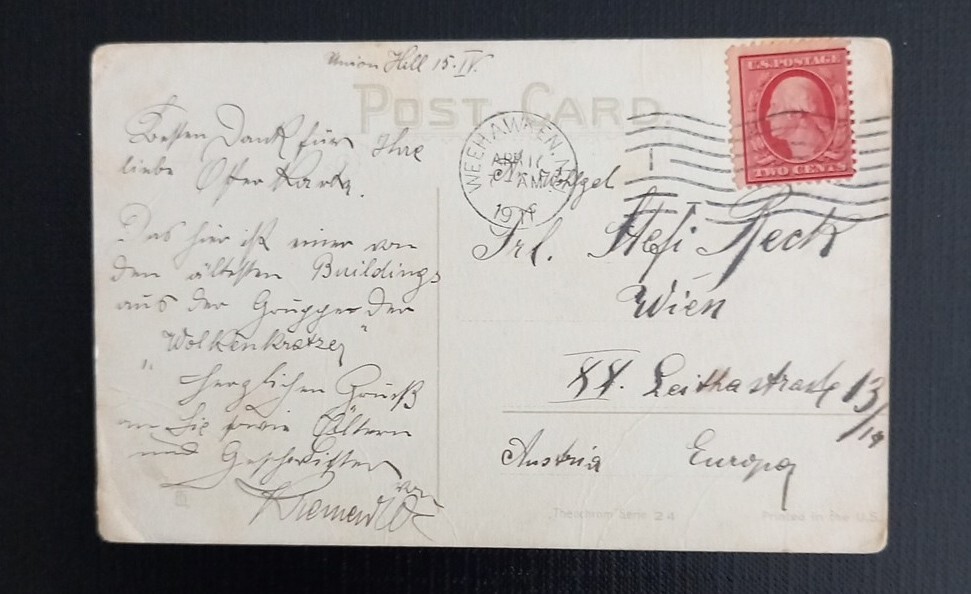 Union Hill 15.IV.
POST CARD.
U.S. POSTAGE
TWO CENTS
WEEHAWKEN, N.J.
APR 1
AM
191
Besten Dank für Ihre
liebe Osterkarte.
Das hier ist einer von
den ältesten Buildings
aus der Gruppe der
"Wolkenkratzer"
Herzlichen Gruß
an Sie sowie Eltern
und Geschwister
von
Frl. Stefi Beck
Wien
XX. Leithastraße 13/19
Austria Europa
Theochrom Serie 24
Printed in the U.S.